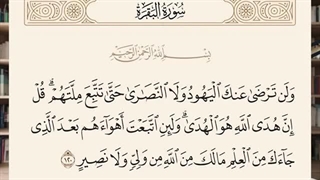 سُورَةُ البَقَرَةِ
بِسْمِ اللَّهِ الرَّحْمَٰنِ الرَّحِيمِ
وَلَن تَرْضَىٰ عَنكَ ٱلْيَهُودُ وَلَا ٱلنَّصَٰرَىٰ حَتَّىٰ تَتَّبِعَ مِلَّتَهُمْ ۗ قُلْ
إِنَّ هُدَى ٱللَّهِ هُوَ ٱلْهُدَىٰ ۗ وَلَئِنِ ٱتَّبَعْتَ أَهْوَآءَهُم بَعْدَ ٱلَّذِى
جَآءَكَ مِنَ ٱلْعِلْمِ مَا لَكَ مِنَ ٱللَّهِ مِن وَلِىٍّ وَلَا نَصِيرٍ ١٢٠